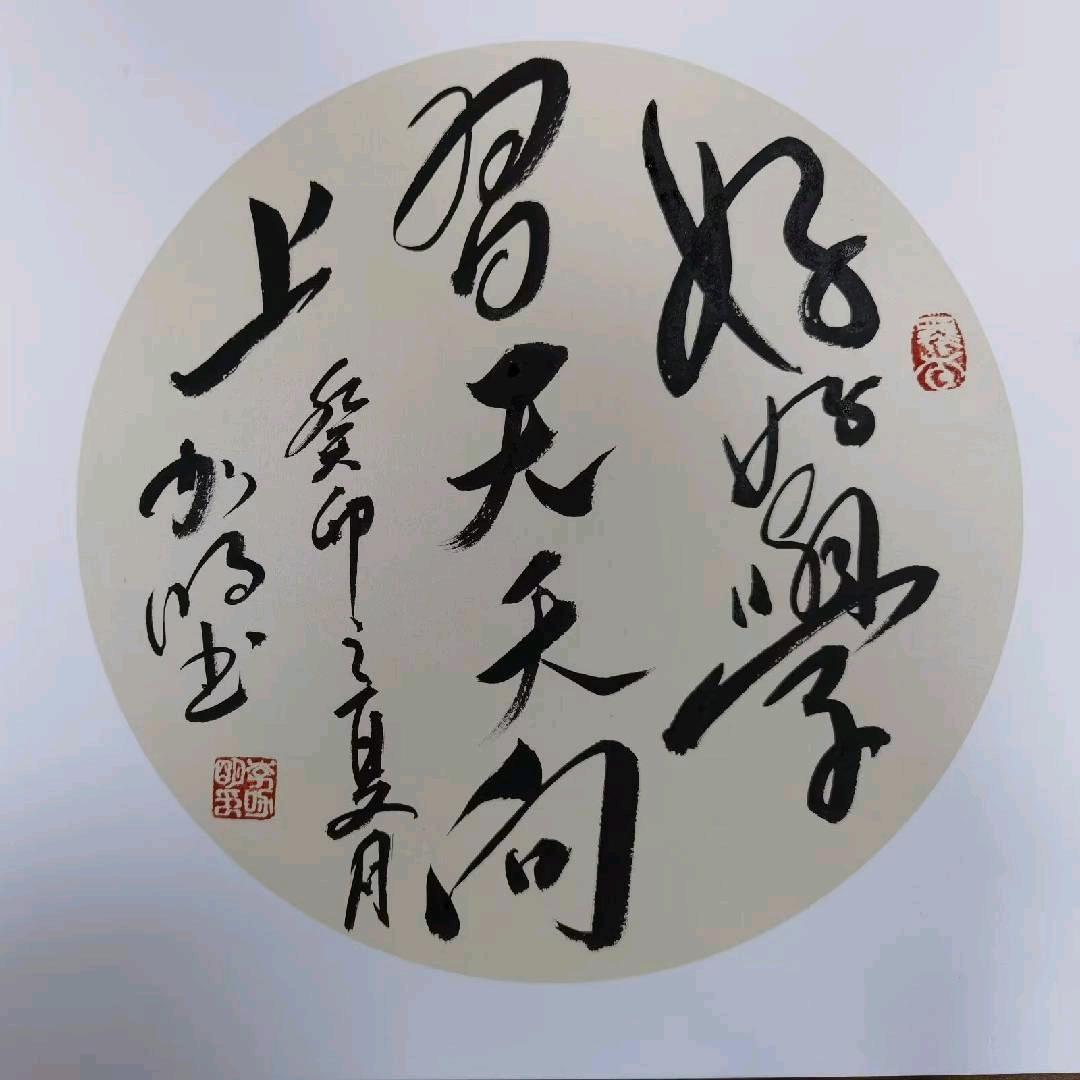 好好學
習天天向
上
癸卯之夏月
书